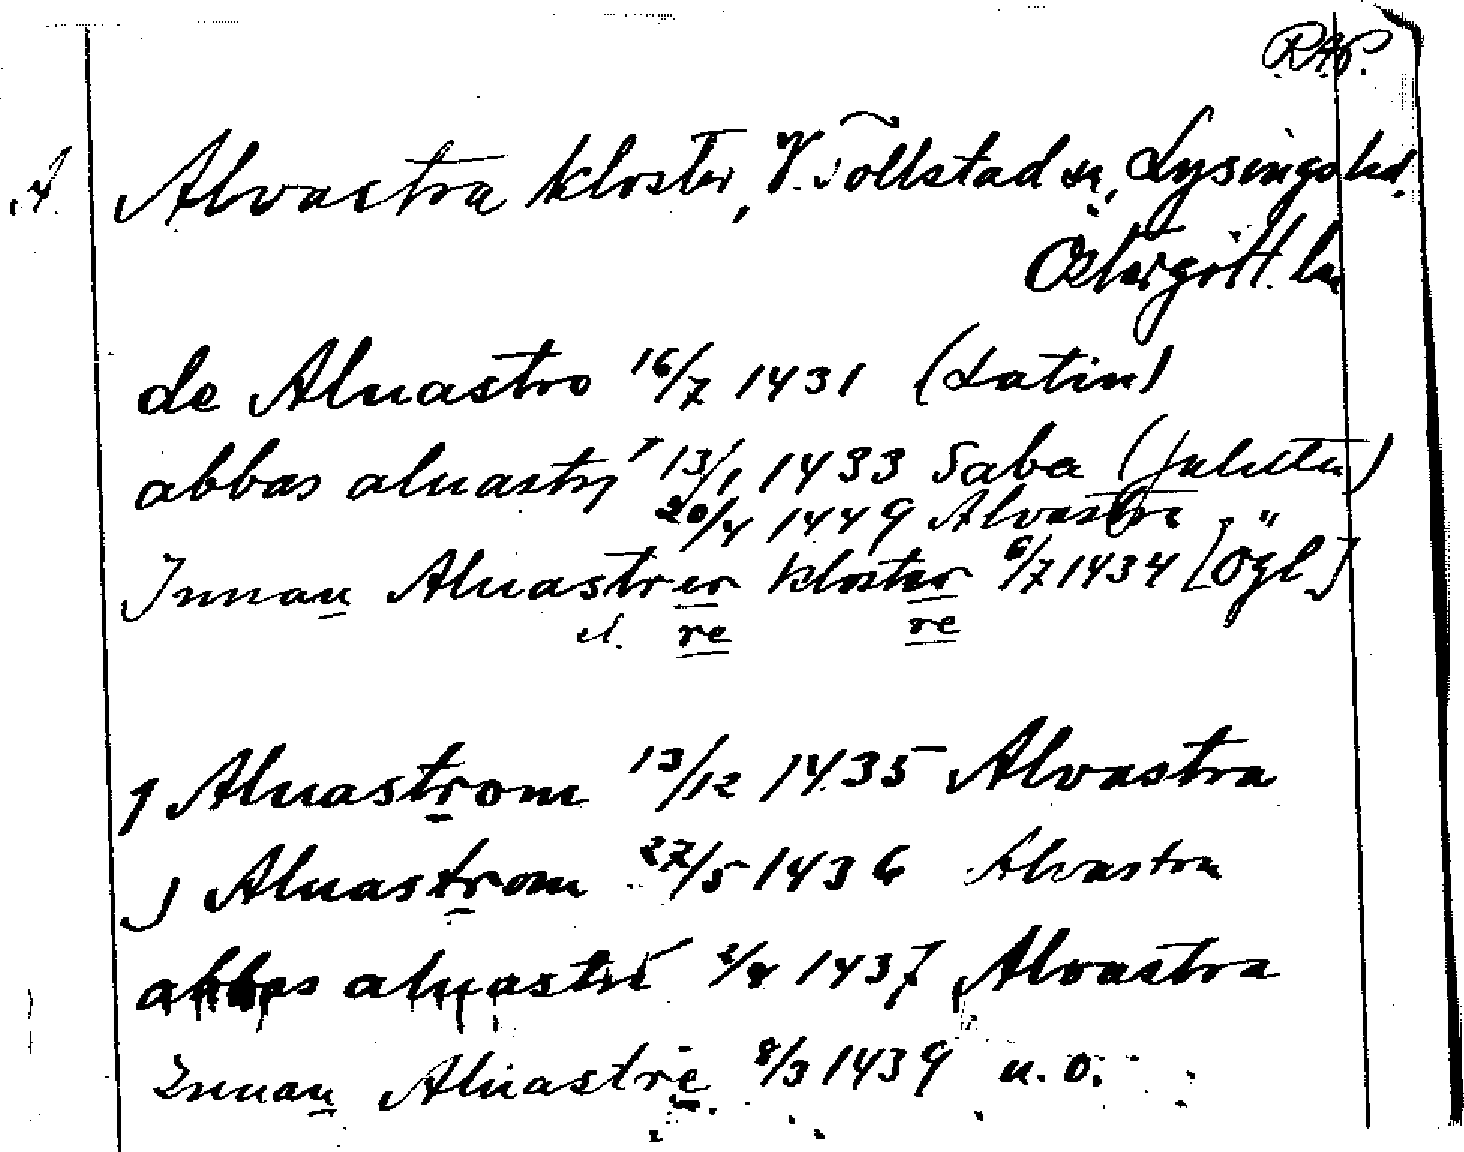 RAP.
A. Alvastra kloster, V. Tollstad sn, Lysings hd.
Östergötl. län
de Aluastro 16/7 1431 (Latin)
abbas aluastrj 13/1 1433 Saba (Julita)
20/4 1449 Alvastra
Jnnan Aluastrer kloster 6/7 1434 [Ögl.]
el. re re
j Aluastrom 13/12 1435 Alvastra
j Aluastrom 27/5 1436 Alvastra
abbas aluastri 1437 Alvastra
Innan Aluastre 8/3 1439 u. o.